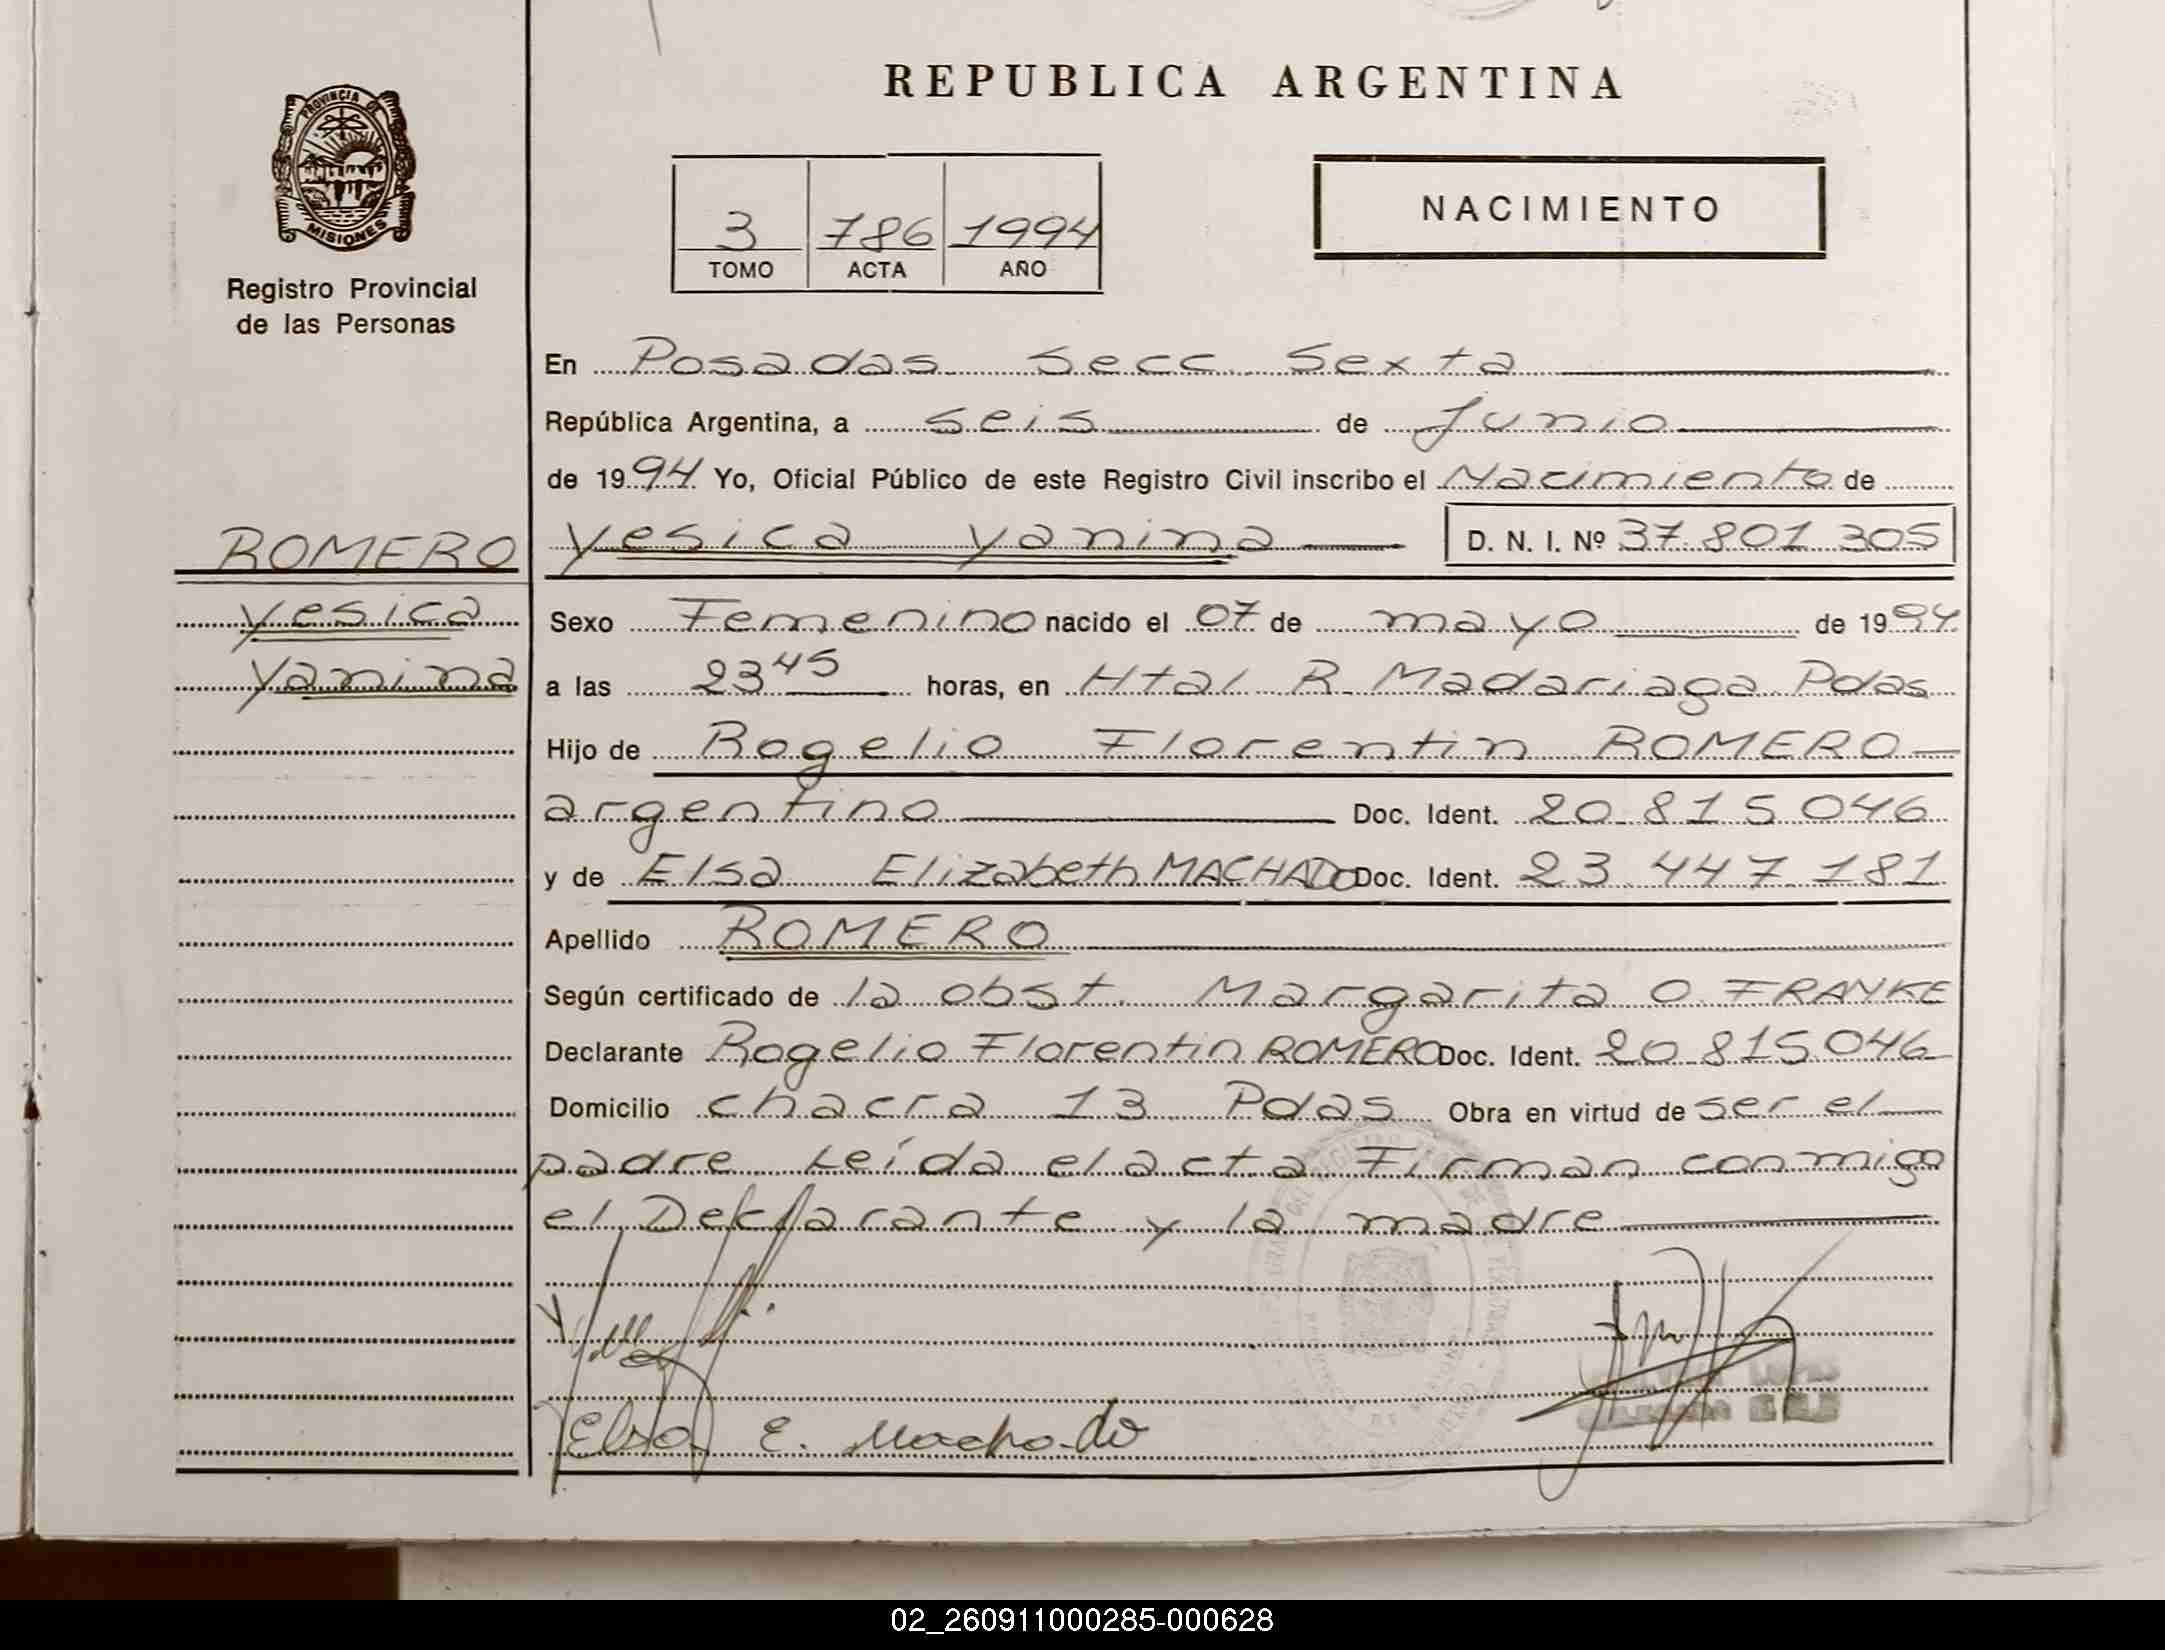 REPUBLICA ARGENTINA
PROVINCIA DE
MISIONES
Registro Provincial
de las Personas
3 786 1994
TOMO ACTA AÑO
NACIMIENTO
En Posadas Secc Sexta
República Argentina, a seis de Junio
de 1994 Yo, Oficial Público de este Registro Civil inscribo el Nacimiento de
ROMERO yesica yanina D. N. I. Nº 37.801.305
yesica Sexo Femenino nacido el 07 de mayo de 1994
yanina a las 23 45 horas, en Htal R. Madariaga Pdas
Hijo de Rogelio Florentin ROMERO
argentino Doc. Ident. 20.815.046
y de Elsa Elizabeth MACHADO Doc. Ident. 23.447.181
Apellido ROMERO
Según certificado de la obst. Margarita O. FRANKE
Declarante Rogelio Florentin ROMERO Doc. Ident. 20.815.046
Domicilio chacra 13 Pdas Obra en virtud de ser el
padre Leída el acta Firman conmigo
el Declarante y la madre
Elsa E. Machado
02_260911000285-000628